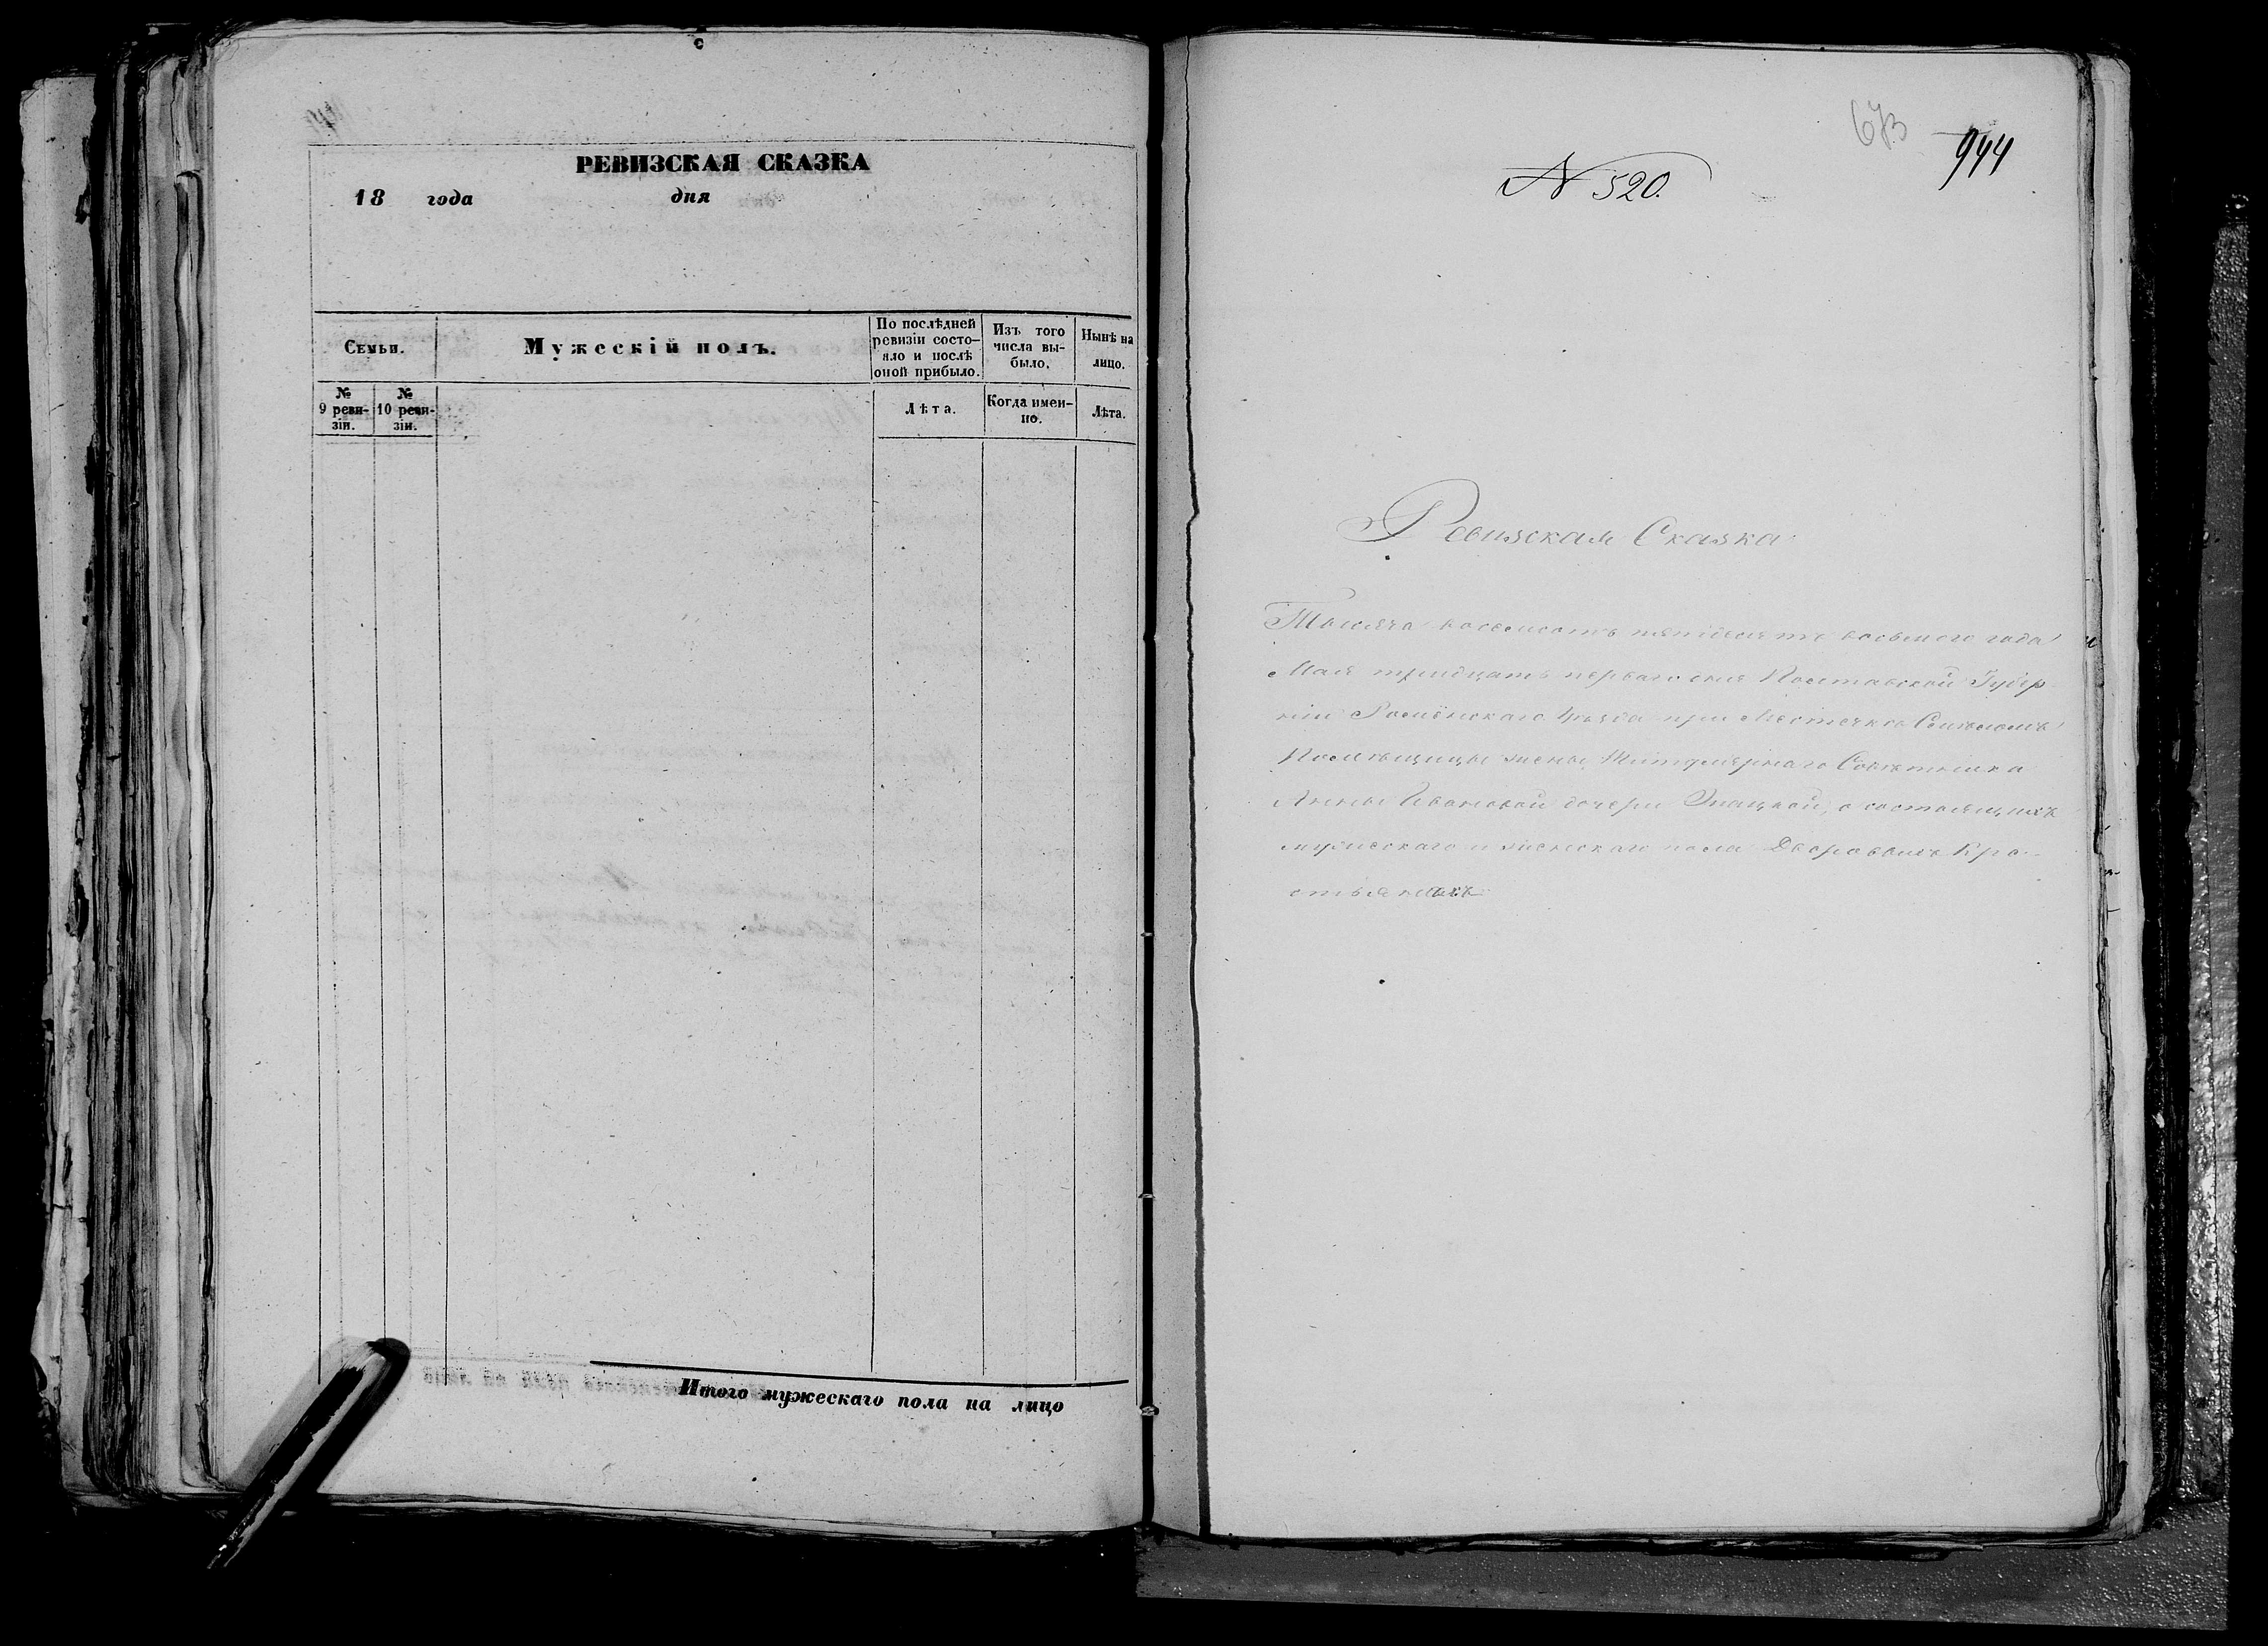 РЕВИЗСКАЯ СКАЗКА
18 года дня
Семьи.
Мужескій полъ.
По послѣдней
ревизіи состо-
яло и послѣ
оной прибыло.
Изъ того
числа вы-
было.
Нынѣ на
лицо.
№
9 реви-
зіи.
№
10 реви-
зіи.
Лѣта.
Когда имен-
но.
Лѣта.
Итого мужескаго пола на лицо
673
944
N 520.
Ревизская Сказка
Тысяча восемсотъ пятьдесятъ восьмого года
Мая тридцать перваго дня Полтавской Губер
ніи Роменскаго Уѣзда при Местечкѣ
Помѣщицы жены Титулярнаго Совѣтника
Анны Ивановой дочери о состоящихъ
мужескаго и женскаго пола Дворовыхъ Кре-
стьянахъ